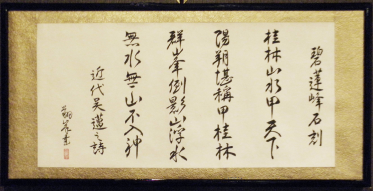 碧蓮峰石刻
桂林山水甲天下
陽朔堪稱甲桂林
群峯倒影山浮水
無水無山不入神
近代吳邁之詩